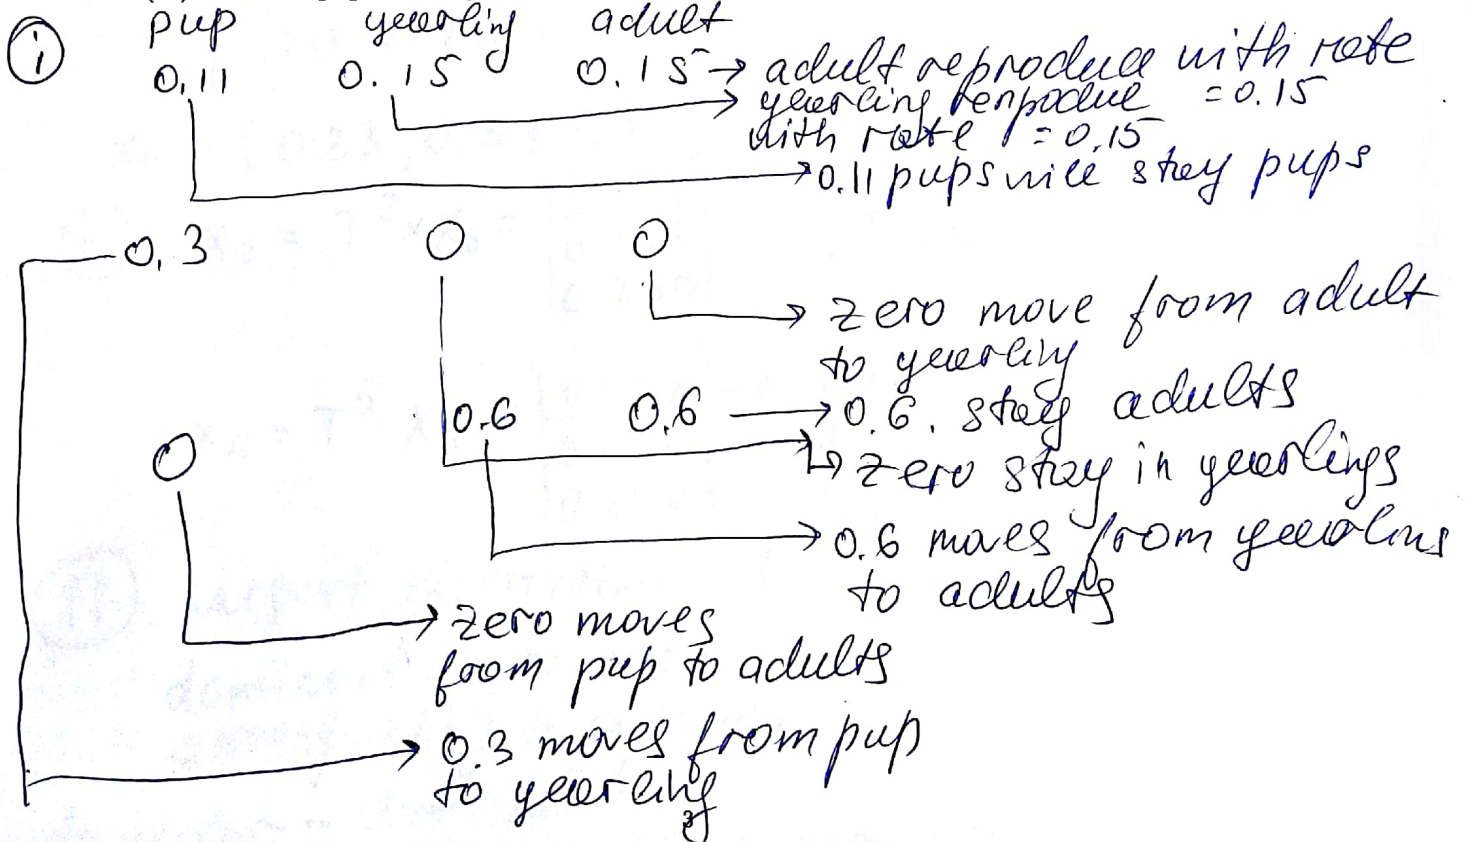 i pup yearling adult
0,11 0.15 0.15 → adult reproduce with rate = 0.15
yearling renpodue
with rate = 0,15
0.11 pups will stay pups
0,3 0 0
zero move from adult
to yearling
0 0.6 0,6 → 0.6. stay adults
zero stay in yearlings
0.6 moves from yearlins
to adults
zero moves
from pup to adults
0.3 moves from pup
to yearling